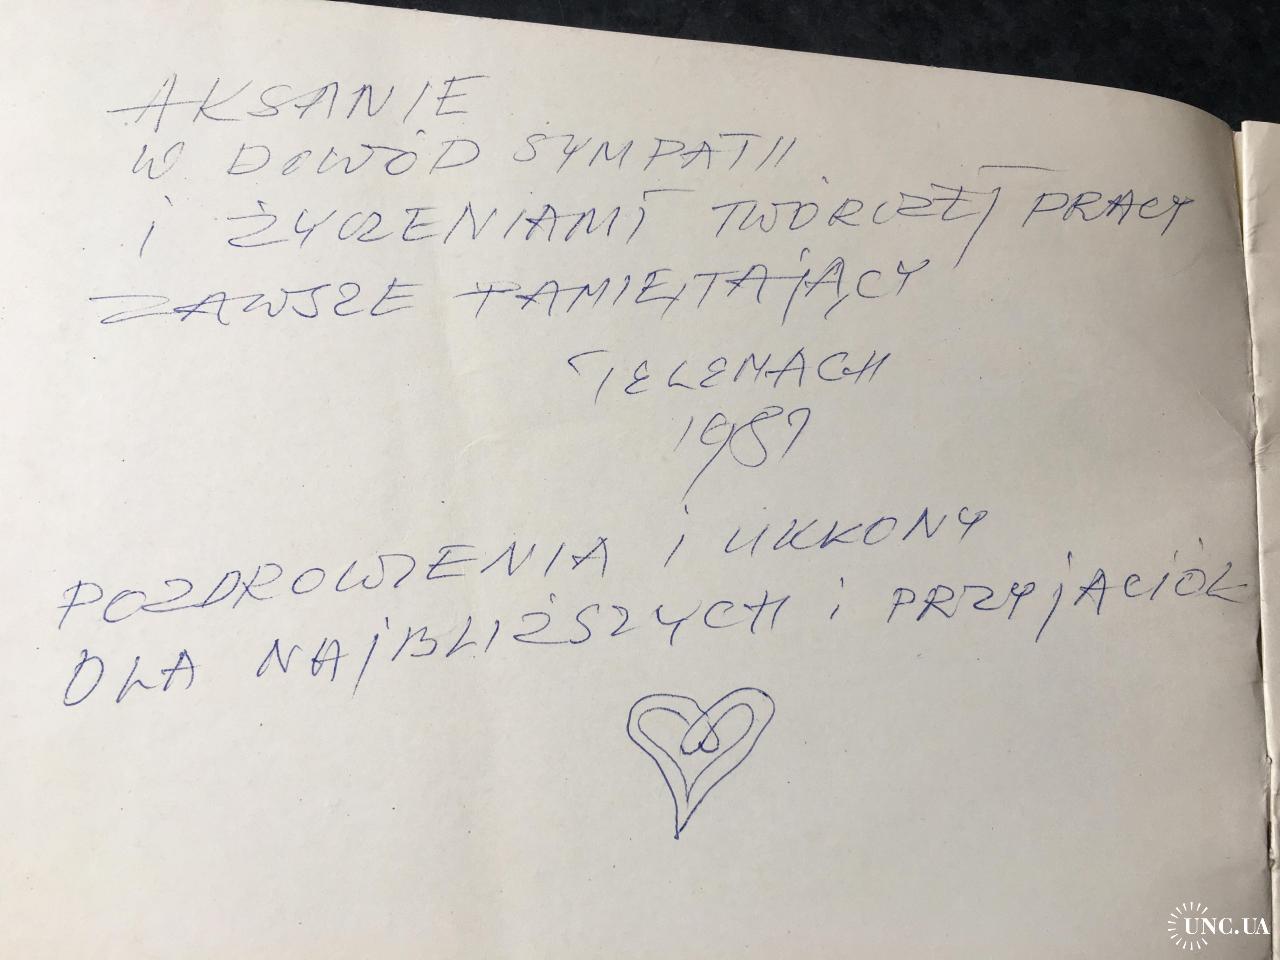 AKSANIE
W DOWÓD SYMPATII
I ŻYCZENIAMI TWÓRCZEJ PRACY
ZAWSZE PAMIĘTAJĄCY
TELEMACH
1987
POZDROWIENIA I UKŁONY
DLA NAJBLIŻSZYCH I PRZYJACIÓŁ
UNC.UA